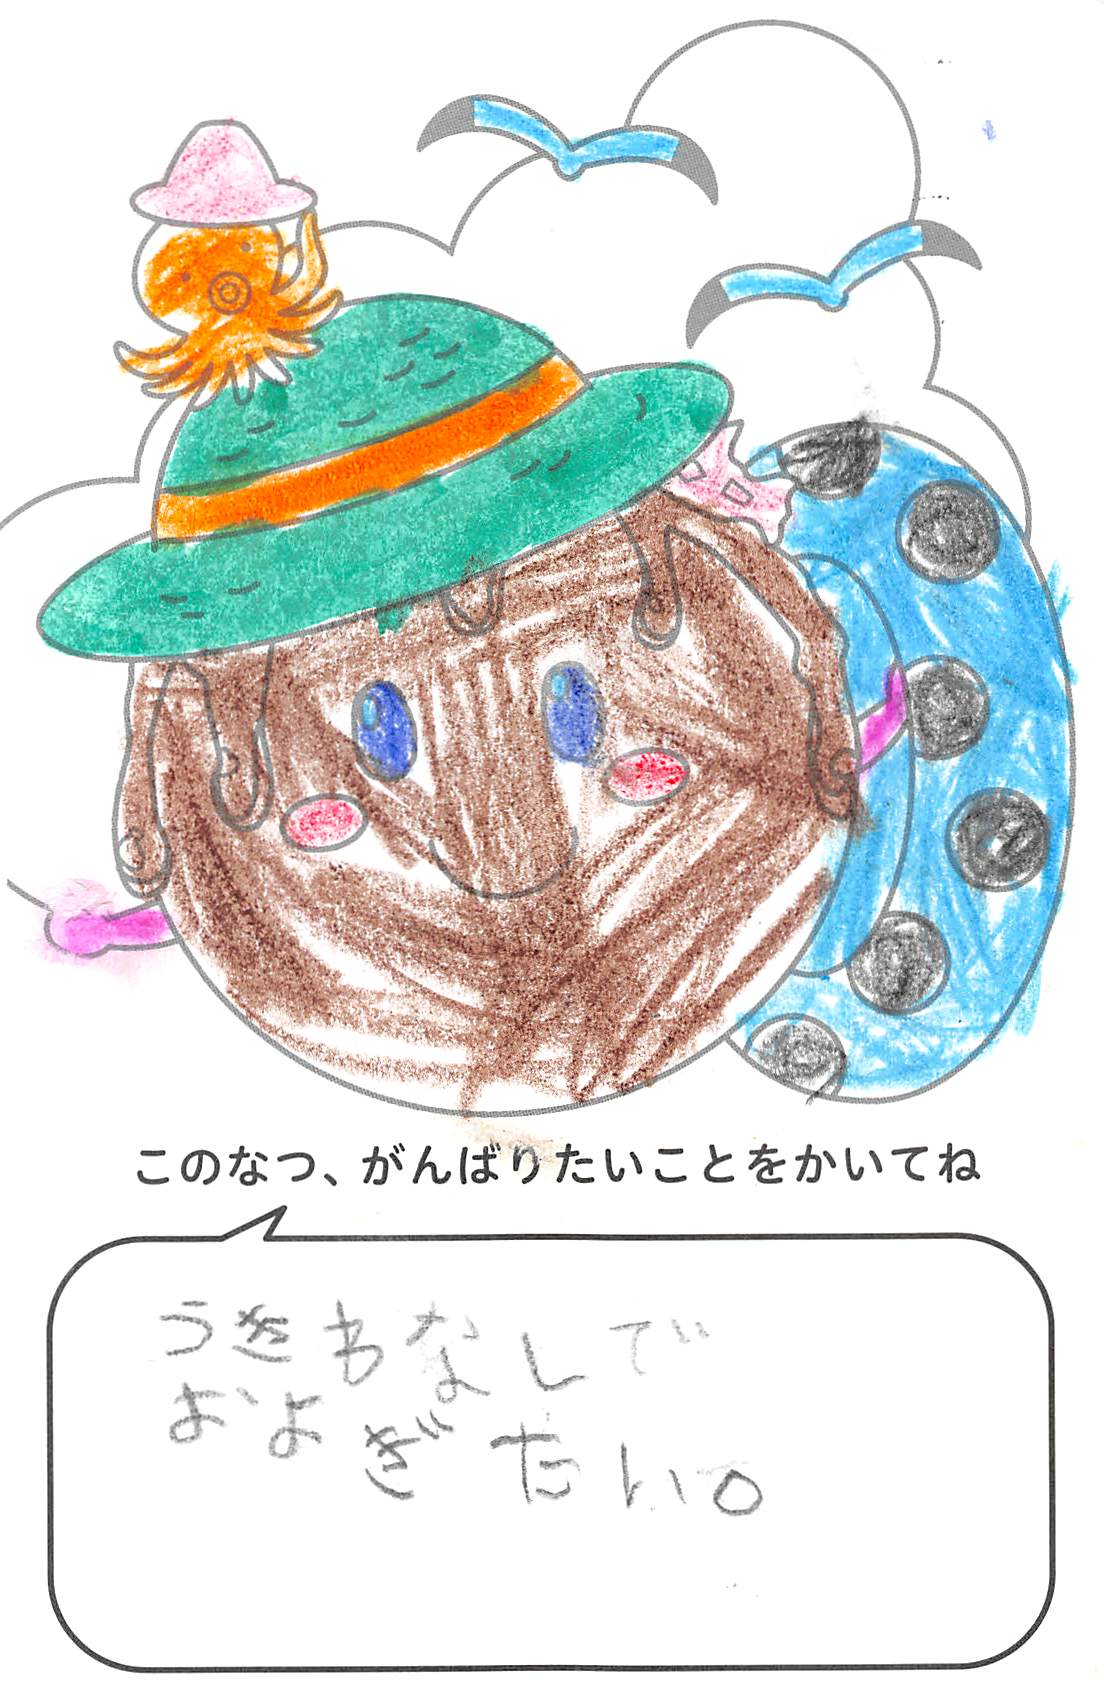 このなつ、がんばりたいことをかいてね
うきもなしで
およぎたい。